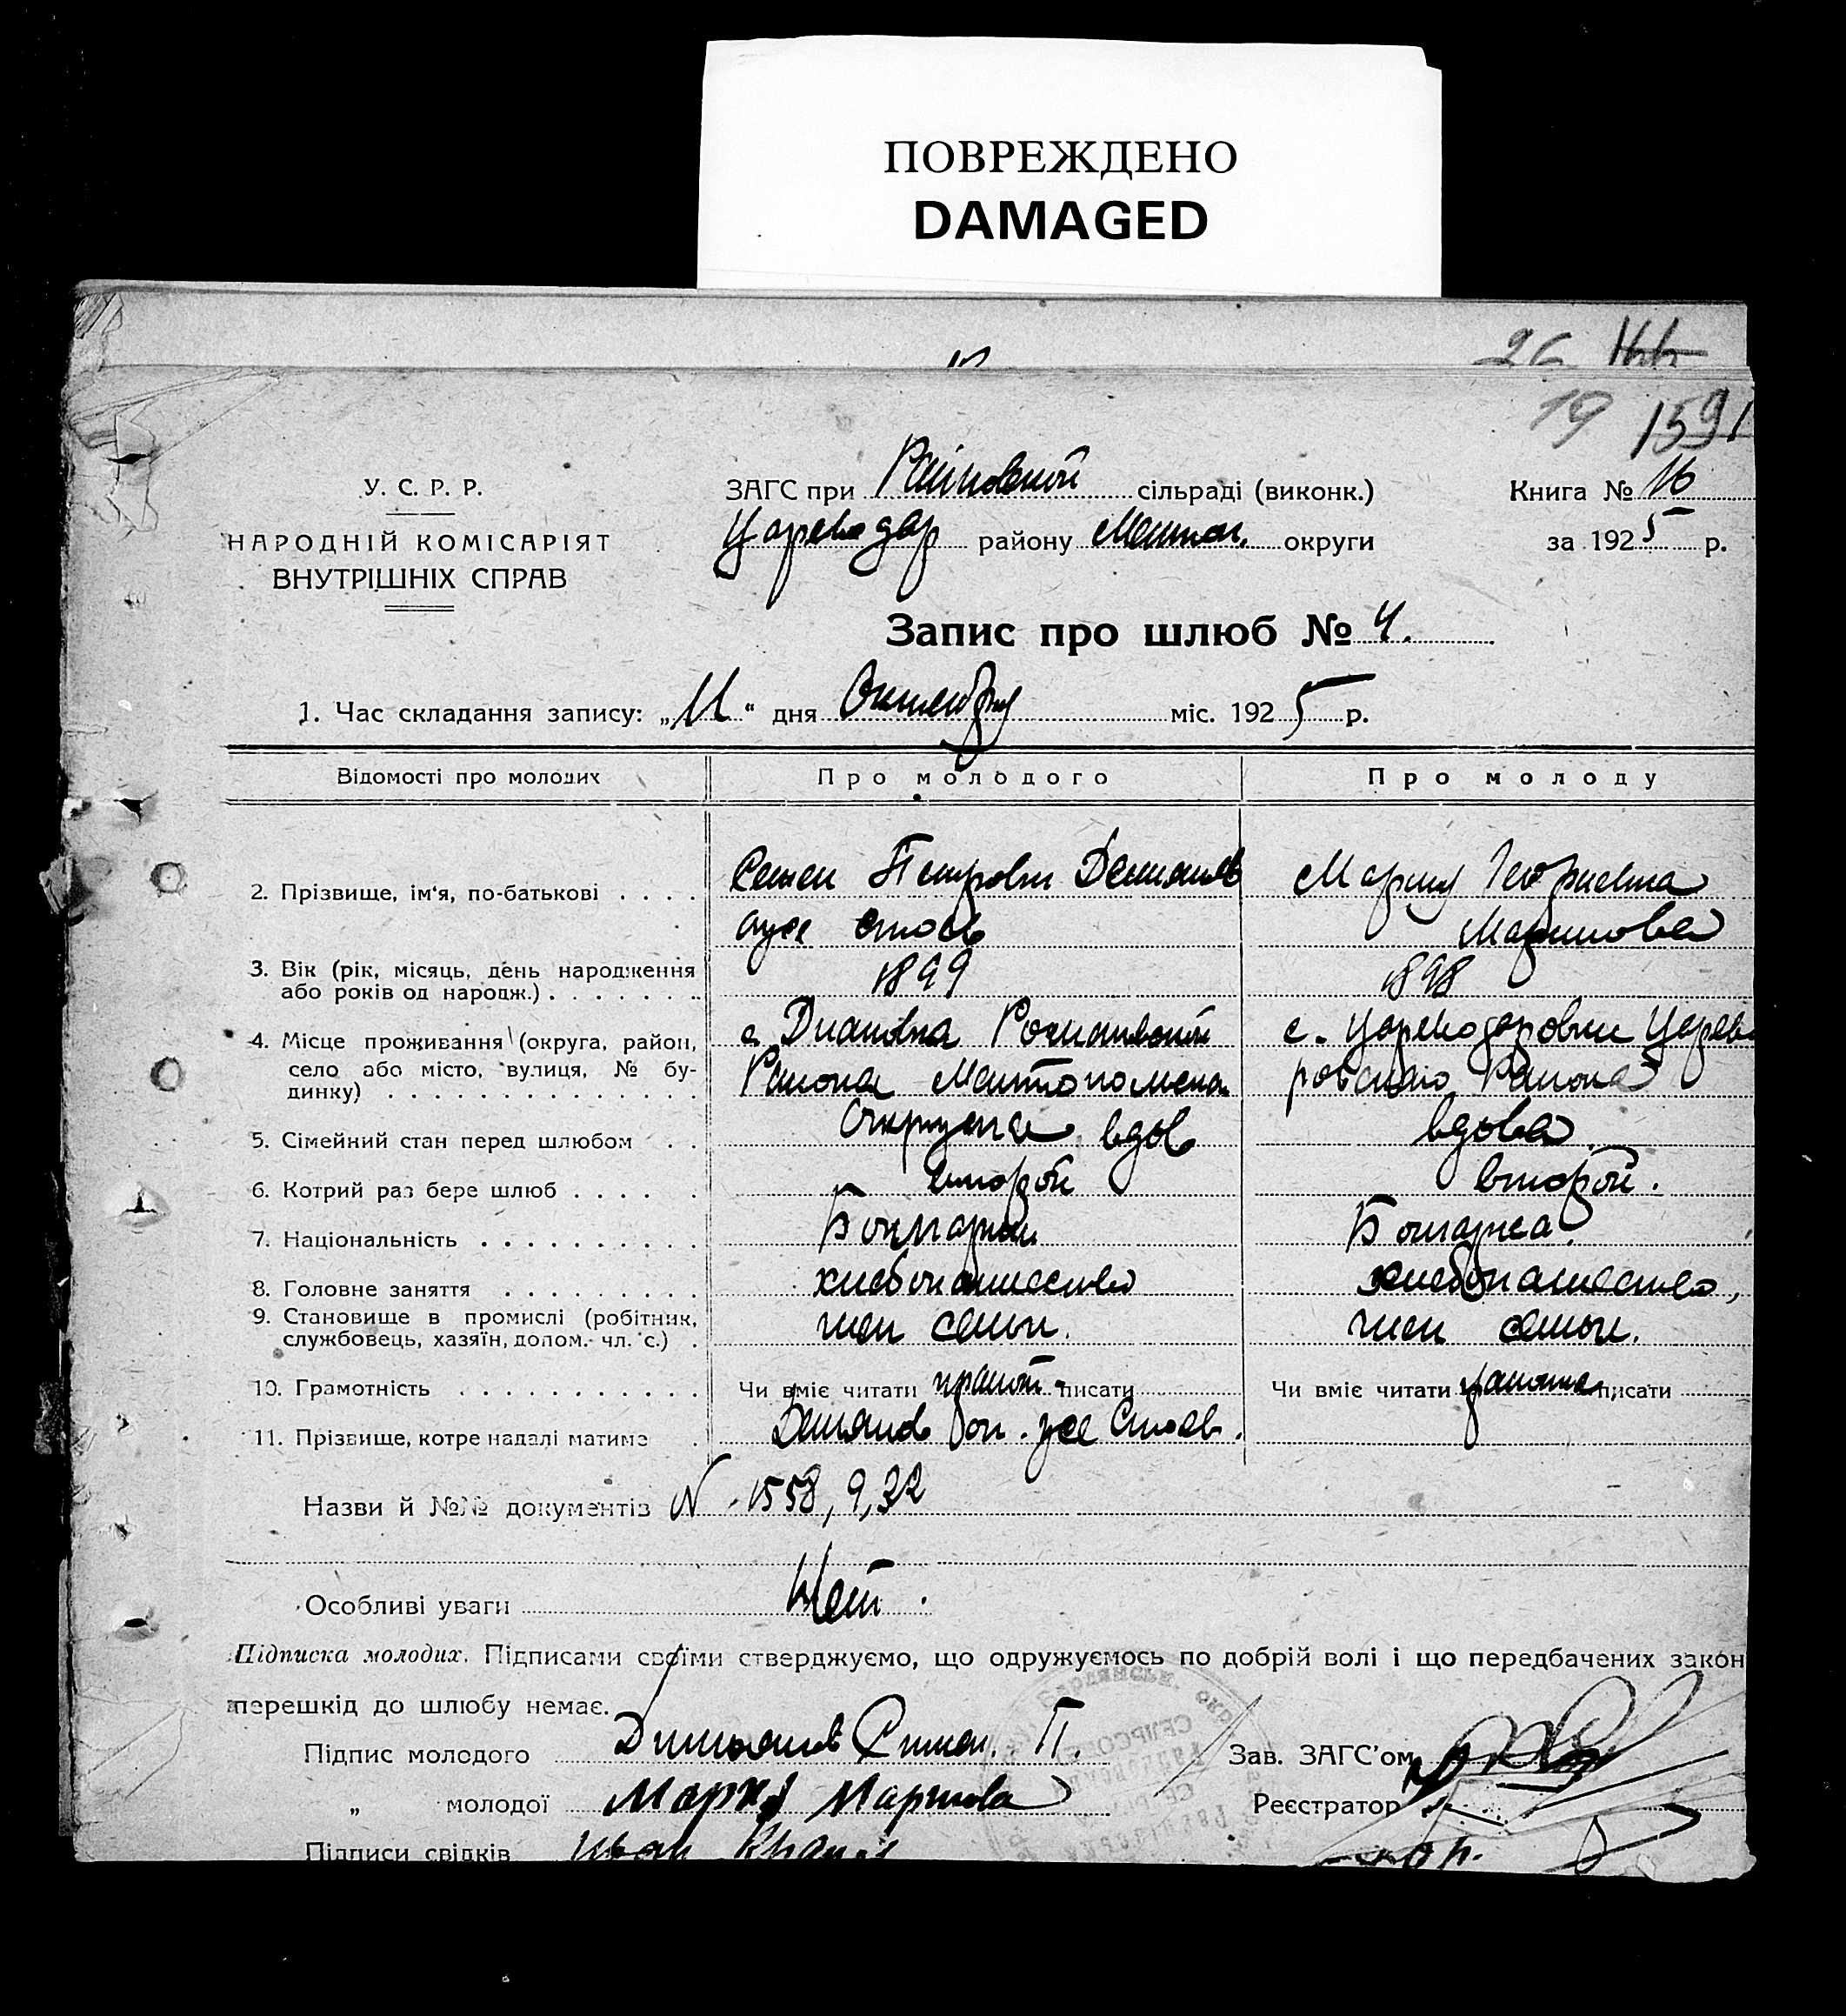 ПОВРЕЖДЕНО
DAMAGED
26
19 1591
У. С. Р. Р.
НАРОДНІЙ КОМІСАРІЯТ
ВНУТРІШНІХ СПРАВ
ЗАГС при Райновской сільраді (виконк.)
Цареводар району Мелитоп. округи
Книга № 16
за 1925 р.
Запис про шлюб № 4.
1. Час складання запису: „11“ дня Октября міс. 1925 р.
Відомості про молодих
Про молодого
Про молоду
2. Прізвище, ім'я, по-батькові . . . .
Семен Петрович Демианов
Мария Георгиевна
он же Стоев
Маринова
3. Вік (рік, місяць, день народження
або років од народж.) . . . . . . .
1899
1898
4. Місце проживання (округа, район,
село або місто, вулиця, № бу-
динку) . . . . . . . . . . . . . .
с. Диановка Романовский
с. Цареводаровки Царево
Района Мелитопольск.
ровского Района
5. Сімейний стан перед шлюбом . .
Округа вдов
вдова
6. Котрий раз бере шлюб . . . . .
второй
второй.
7. Національність . . . . . . . . . .
Болгарин
Болгарка.
8. Головне заняття . . . . . . . . .
хлебопашество
хлебопашество,
9. Становище в промислі (робітник,
службовець, хазяїн, допом. чл. с.) .
член семьи.
член семьи.
10. Грамотність . . . . . . . . . . .
Чи вміє читати грамот. писати
Чи вміє читати грамотна писати
11. Прізвище, котре надалі матиме .
Демианов он же Стоев.
Назви й №№ документів N. 1558, 9, 32
Особливі уваги Нет.
Підписка молодих. Підписами своїми стверджуємо, що одружуємось по добрій волі і що передбачених закон
перешкід до шлюбу немає.
Підпис молодого Димианов Симен. П.
Зав. ЗАГС'ом
„ молодої Мария Маринова
Реєстратор
Підписи свідків Иван